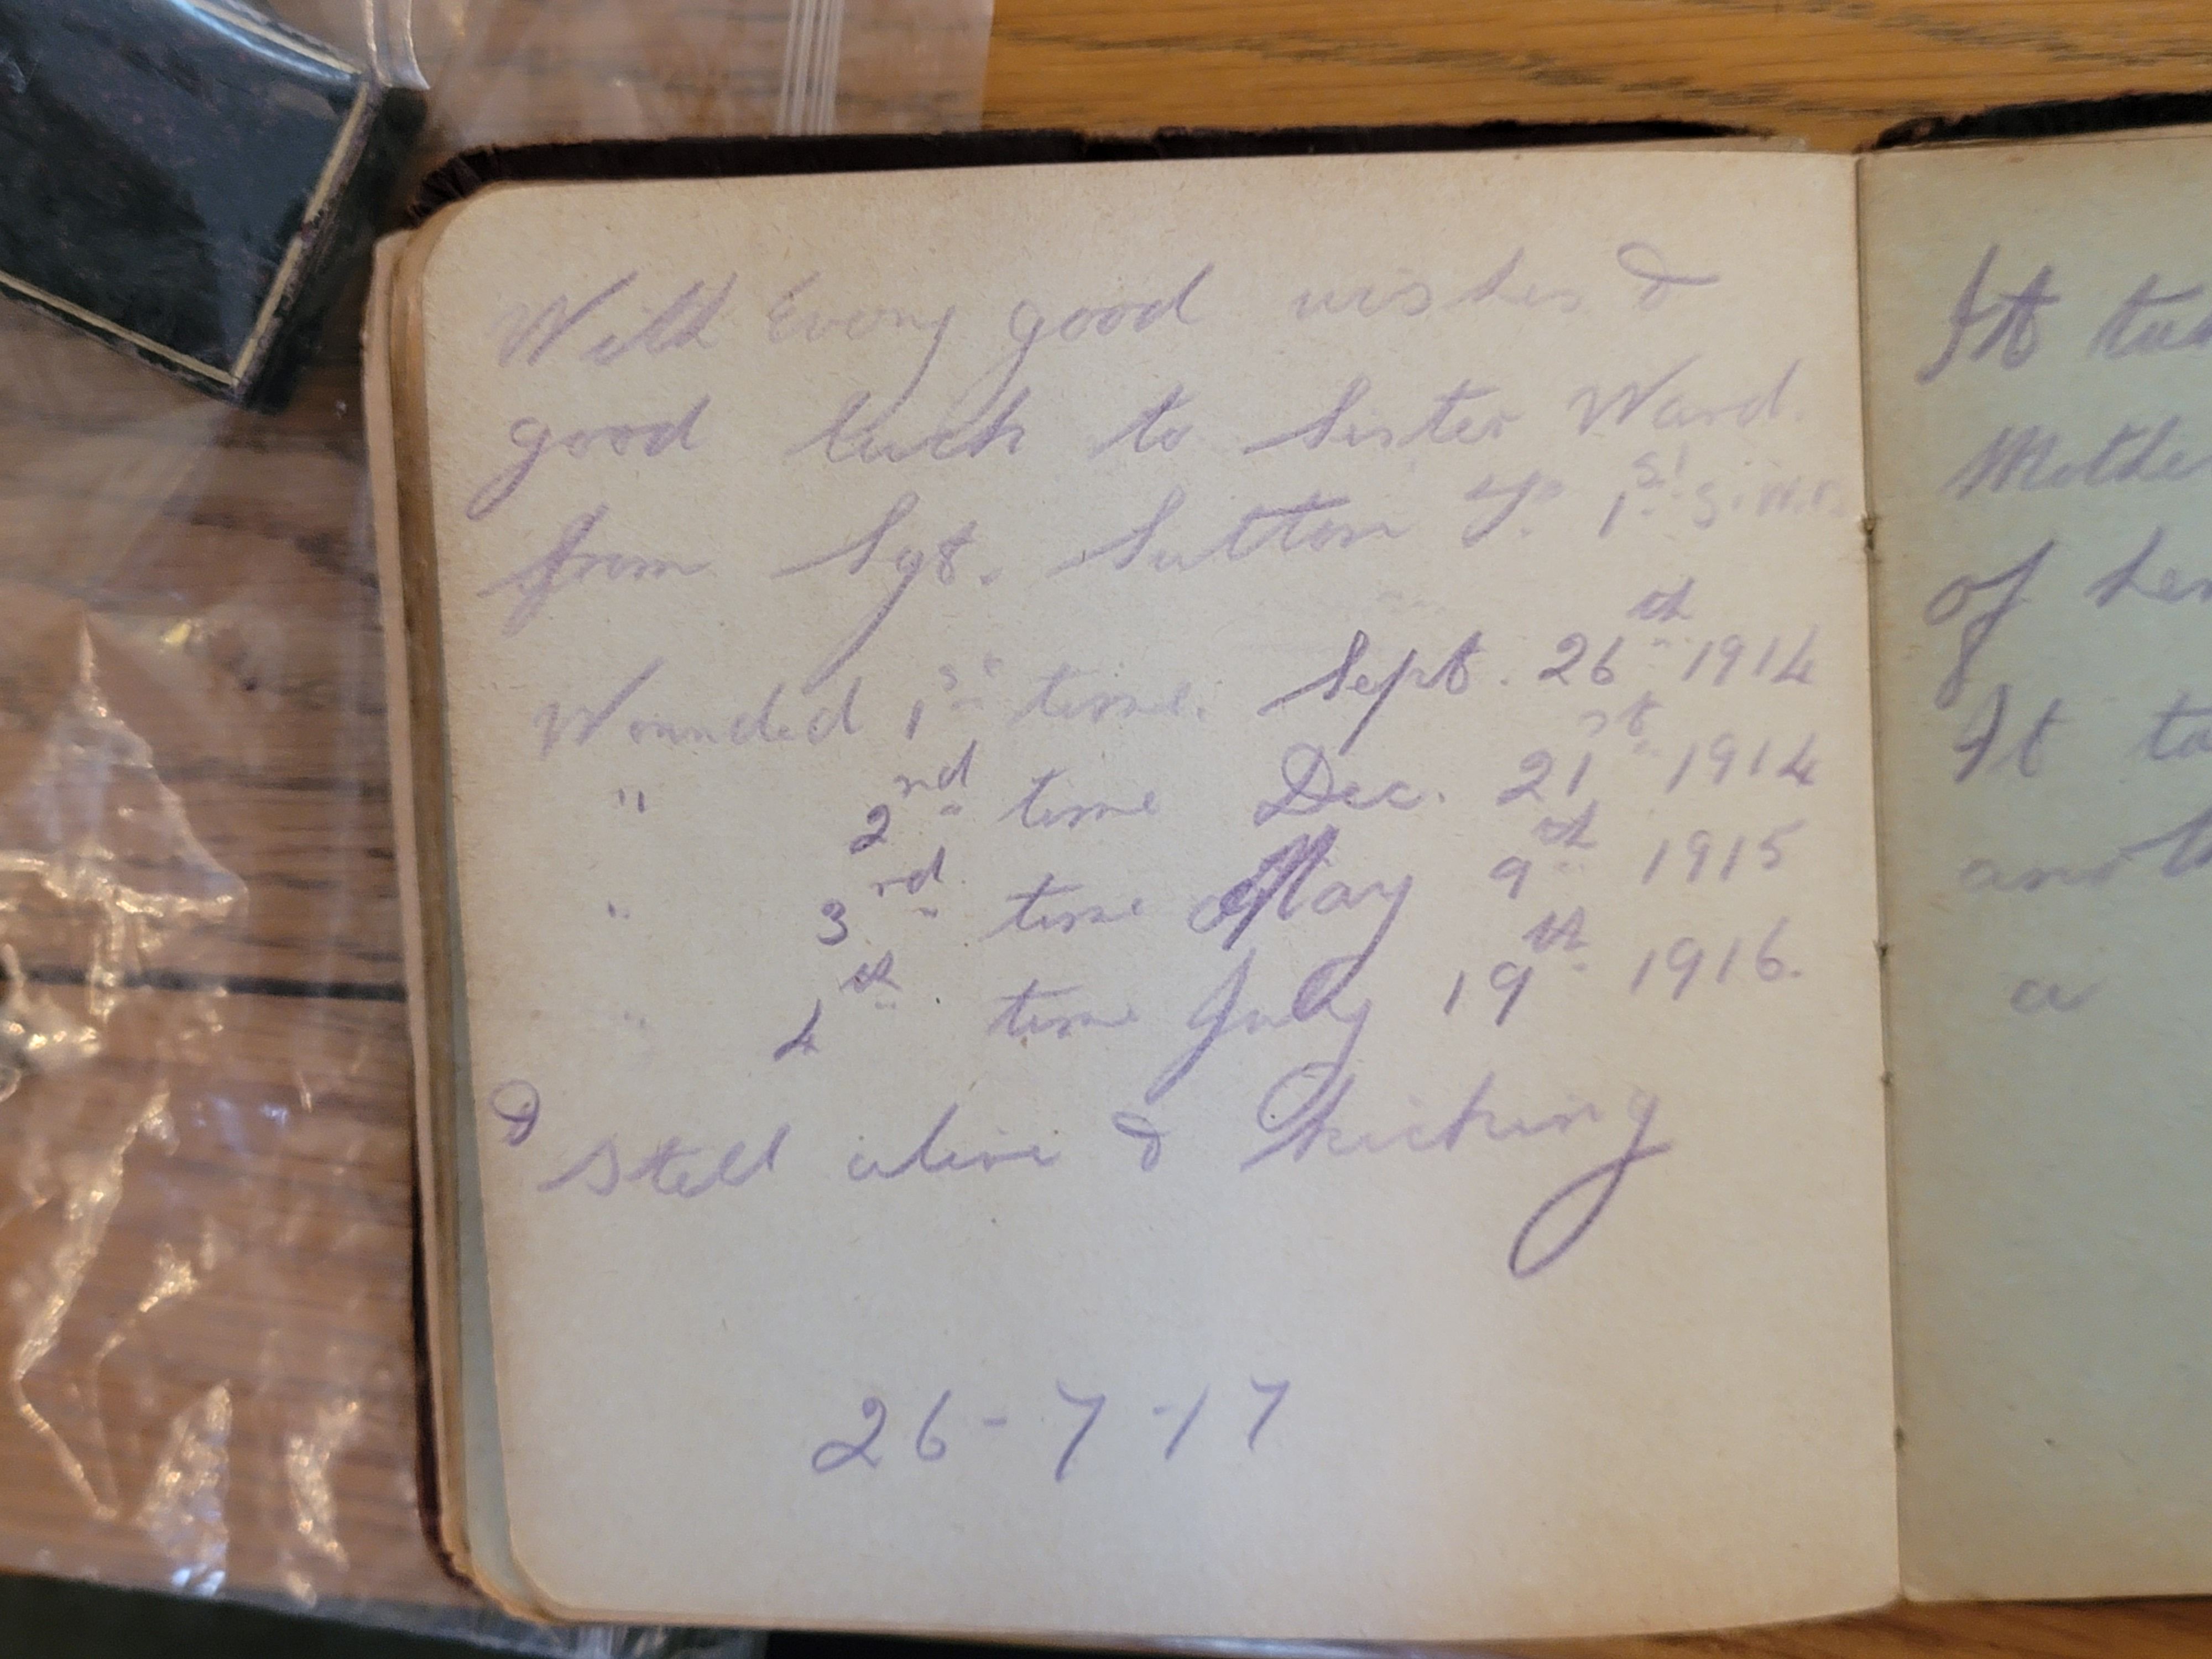 With Every good wishes &
good luck to Sister Ward.
from Sgt. Sutton 1st S.W.B.
Wounded 1st time. Sept. 26th 1914
" 2nd time Dec. 21st 1914
" 3rd time May 9th 1915
" 4th time July 19th 1916.
& Still alive & Kicking
26-7-17
It
Mothe
of her
It ta
anoth
a